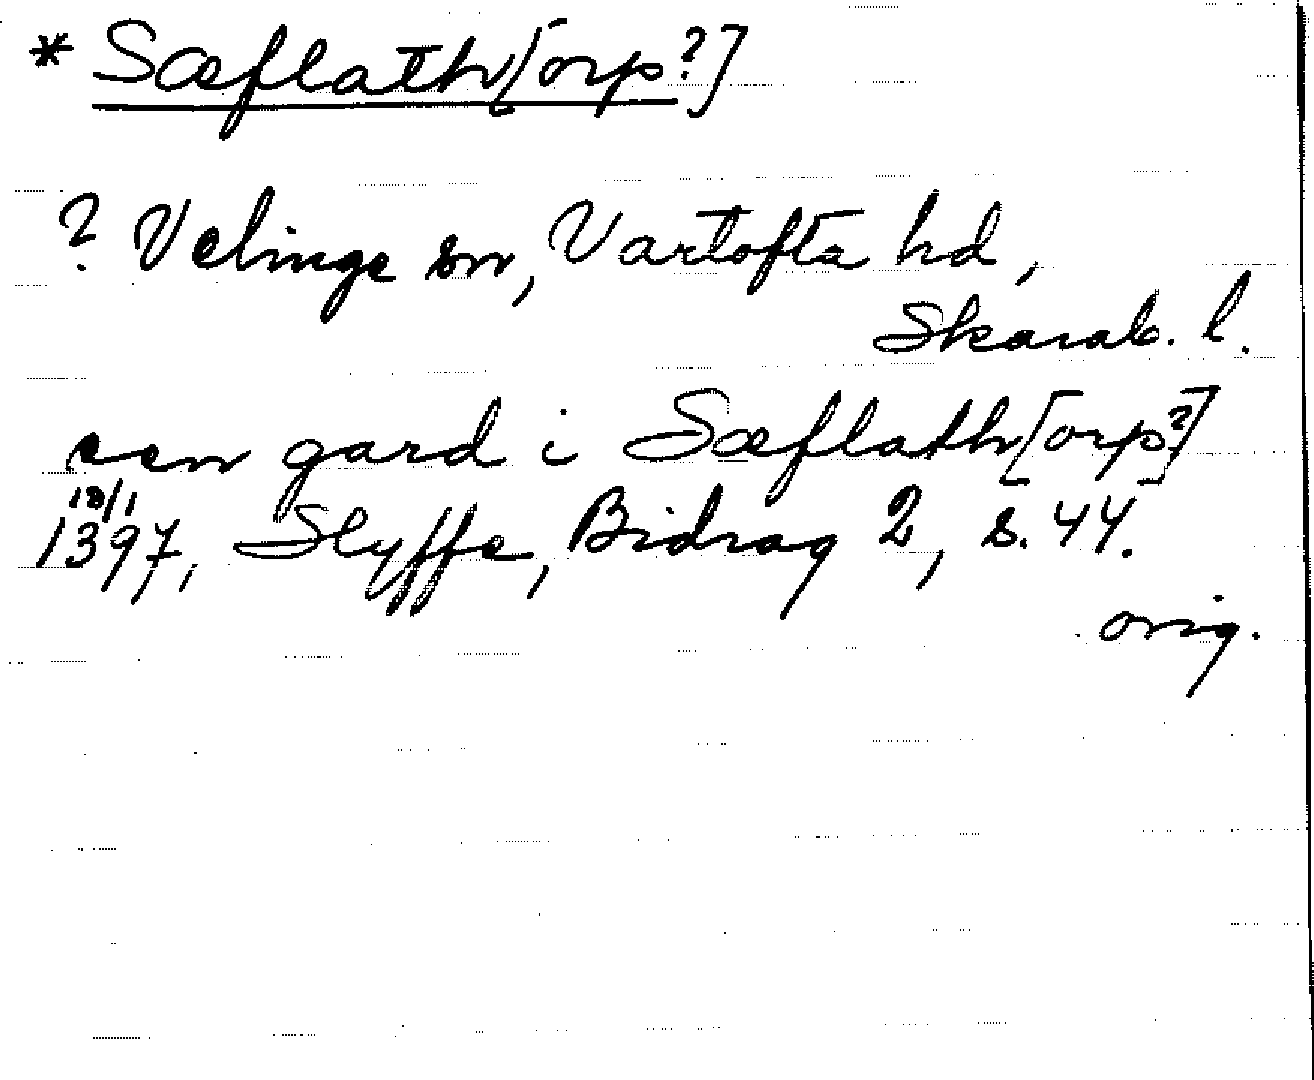 * Sæflath[orp?]
? Velinge sn, Vartofta hd,
Skarab. l.
een gard i Sæflath[orp?]
18/1
1397, Styffe, Bidrag 2, s. 44.
orig.